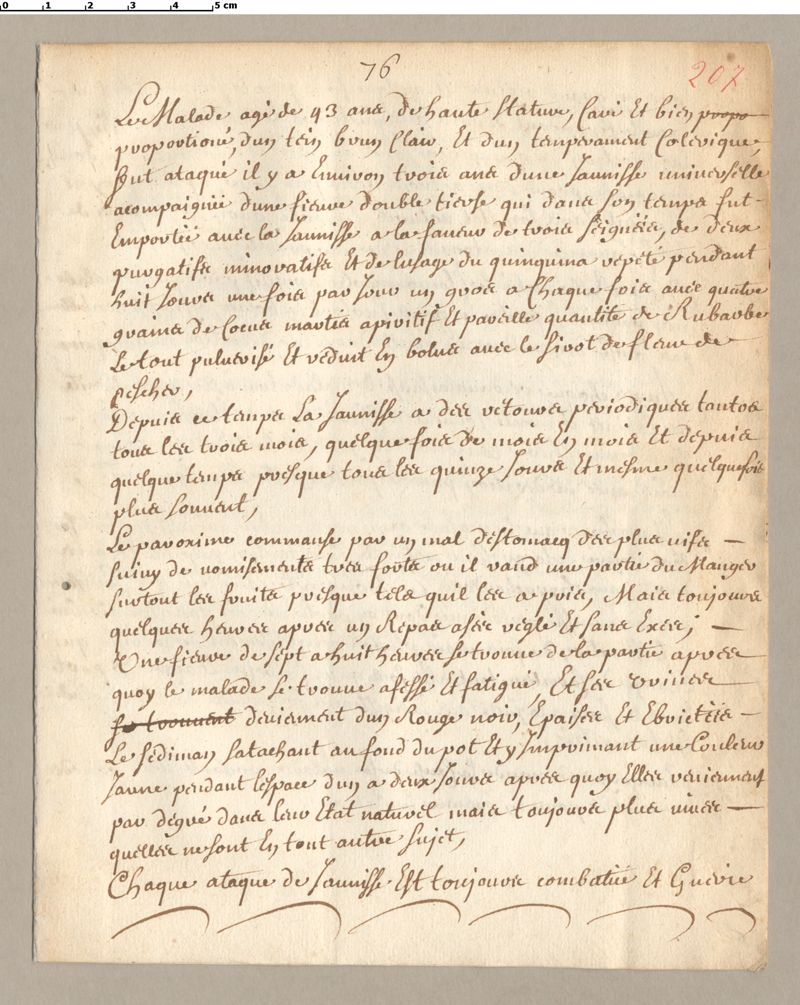 0 1 2 3 4 5 cm
76
207
Le Malade agé de 43 ans, de haute stature, Caré Et bien propo
proportioné, dun tein brun Clair, Et dun temperament Colerique,
fut ataqué il y a Environ trois ans dune Jaunisse universelle
acompaigniée dune fievre double tierse qui dans son temps fut
Emportée avec la Jaunisse a la faveur de trois seignées, de deux
purgatifs minoratifs Et de lusage du quinquina repeté pendant
huit Jours une fois par Jour un gros a Chaque fois avec quatre
grains de Cocus martis apiritif Et pareille quantite de Rubarbe
Le tout pulverisé Et reduit En bolus avec le sirot de fleur de
pescher,
Depuis ce temps La Jaunisse a des retours periodiques tantos
tous les trois mois, quelque fois de mois En mois Et depuis
quelque temps presque tous les quinze Jours Et mesme quelque fois
plus souvent,
Le paroxime commanse par un mal d'estomacq des plus vifs
suivy de vomisements tres forts ou il rand une partie du Manger
surtout les fruits presque tels quil les a pris, Mais toujours
quelques heures apres un Repas asés réglé Et sans Exes;
Une fievre de sept a huit heures se trouve de la partie apres
quoy le malade se trouve afessé Et fatigué, Et ses Urines
se trouvent devienent dun Rouge noir, Epaises Et Ebrietées
Le sediman satachant au fond du pot Et y Imprimant une Couleur
Jaune pendant lespace dun a deux Jours apres quoy Elles revienent
par degré dans leur Etat naturel mais toujours plus vives
quelles ne sont En tout autre sujet,
Chaque ataque de Jaunisse Est toujours combatue Et Guerie